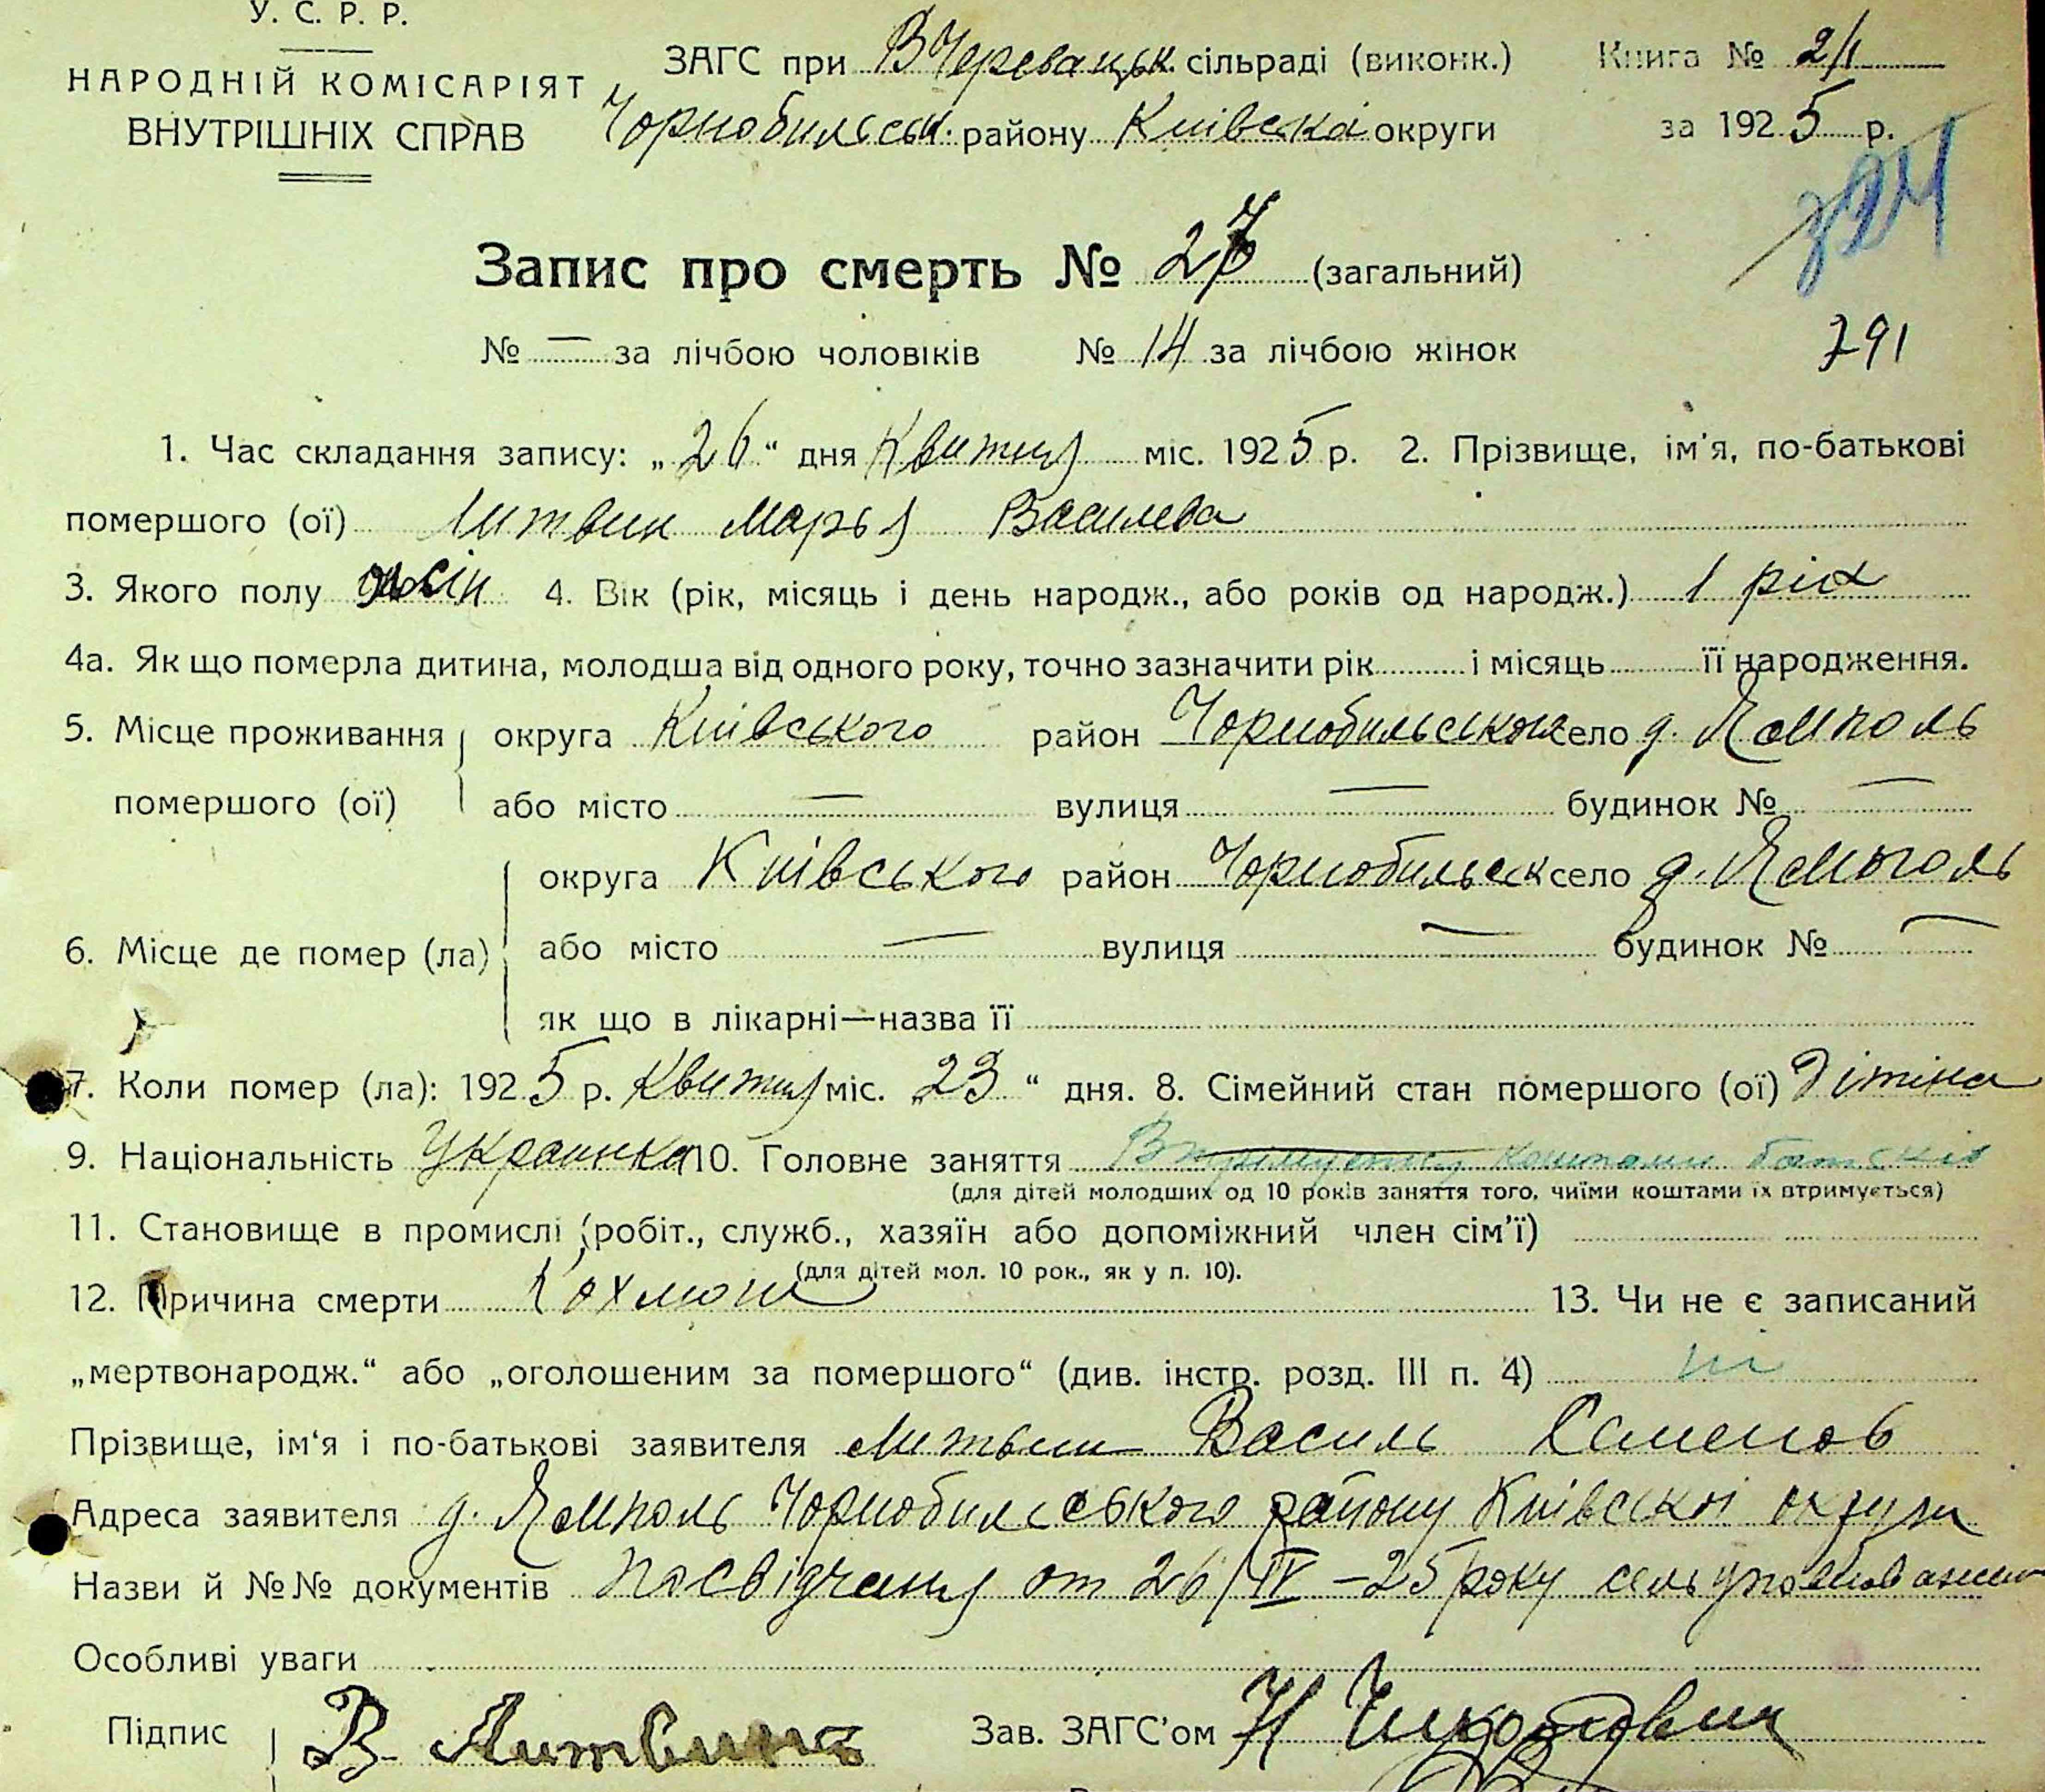 У. С. Р. Р.
НАРОДНІЙ КОМІСАРІЯТ
ВНУТРІШНІХ СПРАВ
ЗАГС при В Черевацьк. сільраді (виконк.)
Чорнобильськ. району Київська округи
Книга № 2/1
за 1925 р.
Запис про смерть № 27 (загальний)
№ — за лічбою чоловіків № 14 за лічбою жінок
791
1. Час складання запису: „26“ дня Квитня міс. 1925 р. 2. Прізвище, ім'я, по-батькові
помершого (ої) Литвин Марья Василева
3. Якого полу жін 4. Вік (рік, місяць і день народж., або років од народж.) 1 рік
4а. Як що померла дитина, молодша від одного року, точно зазначити рік і місяць її народження.
5. Місце проживання помершого (ої) округа Київського район Чорнобильського село д. Ямполь
або місто — вулиця — будинок № —
6. Місце де помер (ла) округа Київського район Чорнобильськ село д. Ямполь
або місто — вулиця — будинок № —
як що в лікарні—назва її
7. Коли помер (ла): 1925 р. Квитня міс. „23“ дня. 8. Сімейний стан помершого (ої) Дітіна
9. Національність Украинка 10. Головне заняття коштами батьків
(для дітей молодших од 10 років заняття того, чиїми коштами їх втримується)
11. Становище в промислі (робіт., служб., хазяїн або допоміжний член сім'ї)
(для дітей мол. 10 рок., як у п. 10).
12. Причина смерти Кохлюш 13. Чи не є записаний
„мертвонародж.“ або „оголошеним за помершого“ (див. інстр. розд. III п. 4) ні
Прізвище, ім'я і по-батькові заявителя Литвин Василь Саменов
Адреса заявителя д. Ямполь Чорнобильського району Київської округи
Назви й №№ документів посвідчання от 26/IV —25 року сельуповноважен
Особливі уваги
Підпис В. Литвинъ Зав. ЗАГС'ом Н